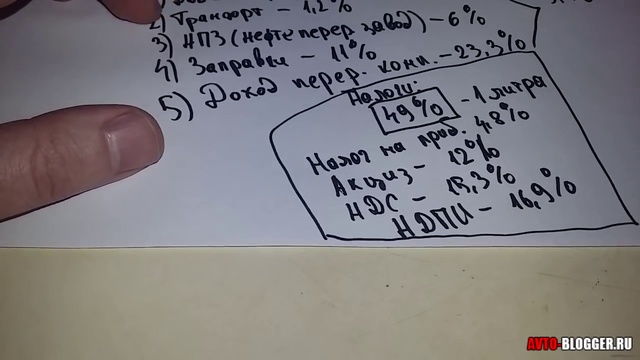 2) Транспорт - 1,2%
3) НПЗ (нефте перер завод) - 6%
4) Заправки - 11%
5) Доход перер. комп. - 23,3%
Налоги:
49% - 1 литра
Налог на приб. 4,8%
Акциз - 12%
НДС - 15,3%
НДПИ - 16,9%
AVTO-BLOGGER.RU